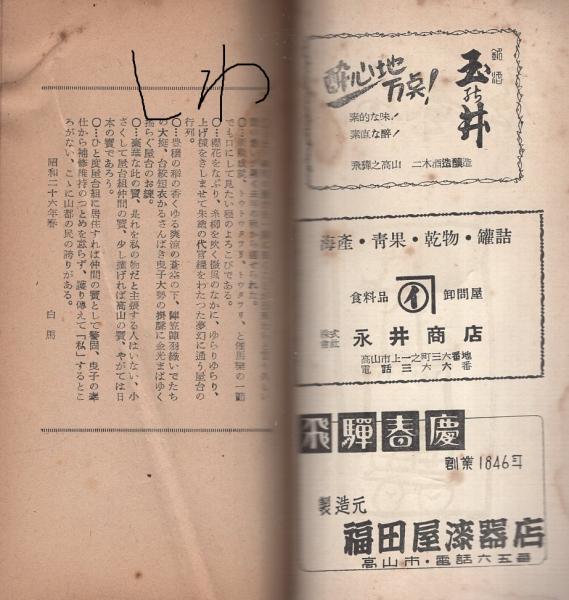 しわ
銘酒
玉の井
酔心地
万点!
素的な味.!
素直な酔!
飛驒之高山 二木酒造釀造
海產・青果・乾物・罐詰
食料品 イ 卸問屋
株式会社 永井商店
高山市上一之町三六番地
電話三六六番
飛驒春慶
創業1846年
製造元
福田屋漆器店
高山市・電話六五番
でも口にして見たい寝のよろこびである。
〇…櫻花をなぶり、糸柳を吹く微風のなかに、ゆらりゆらり、
上げ棧をきしませて朱塗の代官橋をわたった夢幻に通う屋台の
行列。
〇…豊穣の稲の香くゆる爽涼の蒼空の下、陣笠陣羽織いでたち
搖らぐ屋台のお練。
〇…豪華な此の寶、是れを私の物だと主張する人はいない、小
さくして屋台組仲間の寶、少し擴げれば高山の寶、やがては日
本の寶であろう。
〇…ひと度屋台組に居住すれば仲間の寶として警固、曳子の奉
仕から補修維持のつとめを怠らず、護り傳えて「私」するとこ
ろがない、こゝに山都の民の誇りがある。
昭和二十六年春
白馬